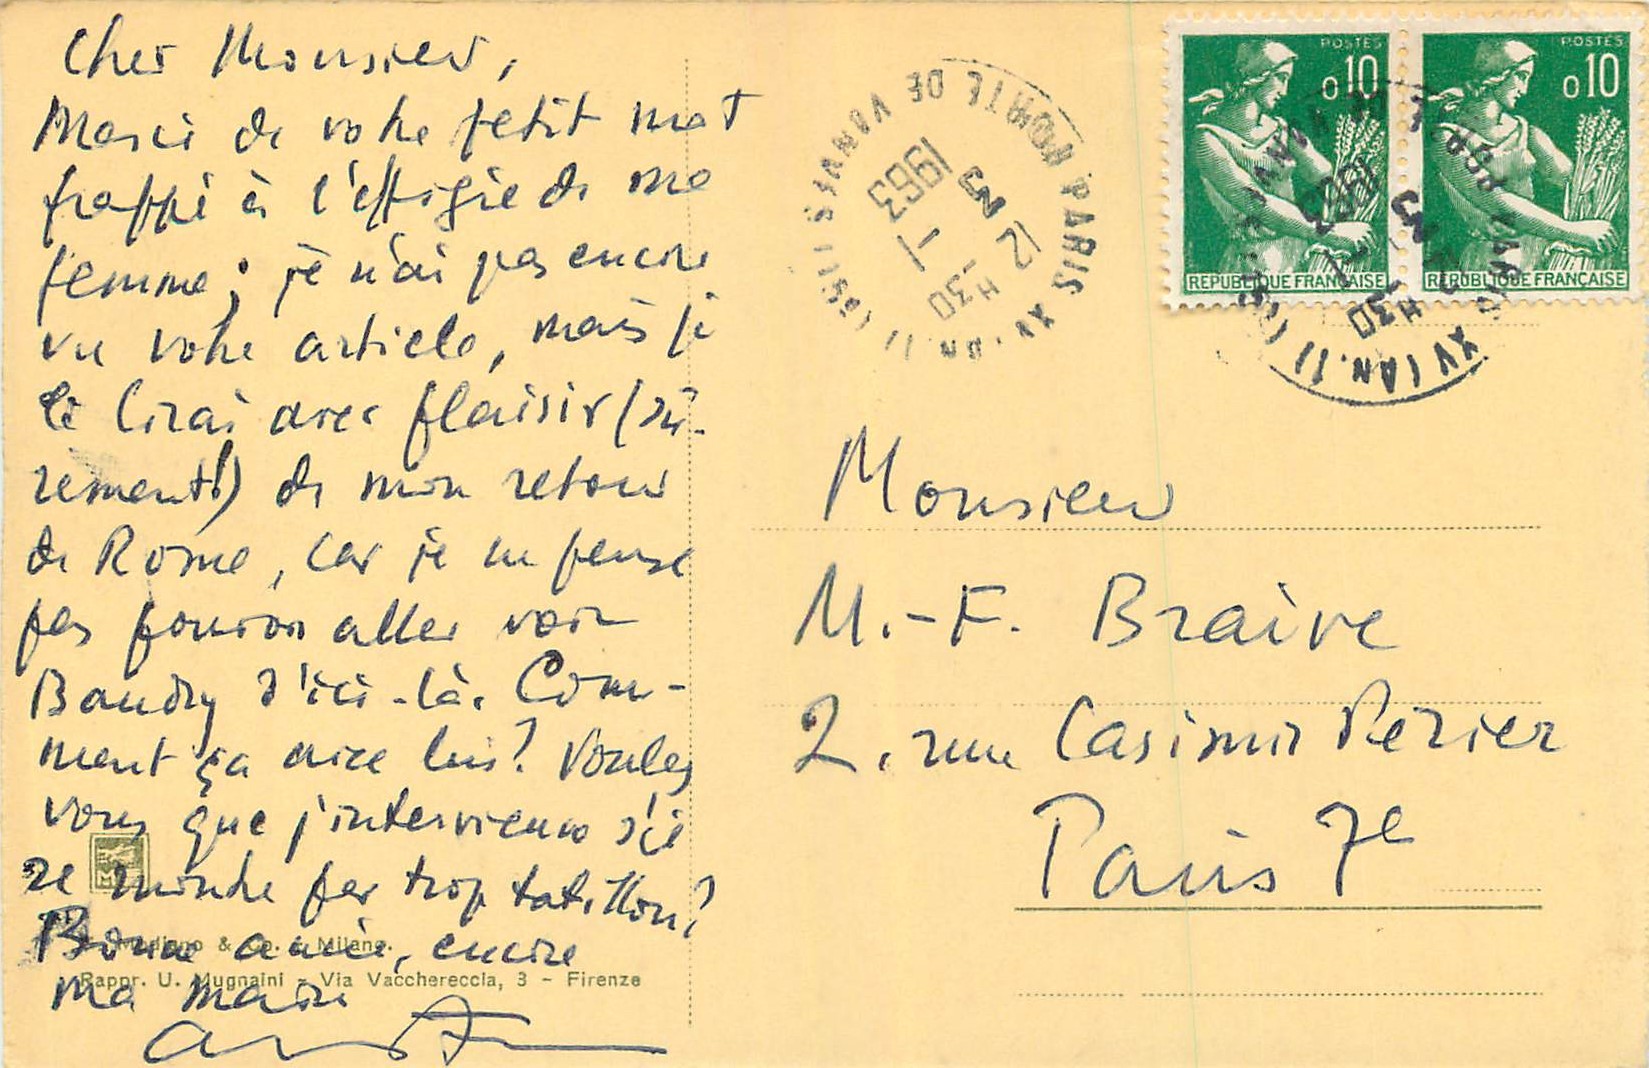 Cher Monsieur,
Merci de votre petit mot
frappé à l'effigie de ma
femme ; je n'ai pas encore
vu votre article, mais je
le lirai avec plaisir (sû-
rement!) dès mon retour
de Rome, car je ne pense
pas pouvoir aller voir
Baudry d'ici-là. Com-
ment ça avec lui? Voulez
vous que j'intervienne s'il
se montre par trop tatillon?
Bonne année, encore
ma
& Co. - Milano.
Rappr. U. Mugnaini - Via Vacchereccia, 3 - Firenze
POSTES
0,10
REPUBLIQUE FRANÇAISE
POSTES
0,10
REPUBLIQUE FRANÇAISE
PARIS XV - AN. II (155) 155 R. DE VANVES
12 H30
1963
Monsieur
M.-F. Braive
2, rue Casimir Perier
Paris 7e